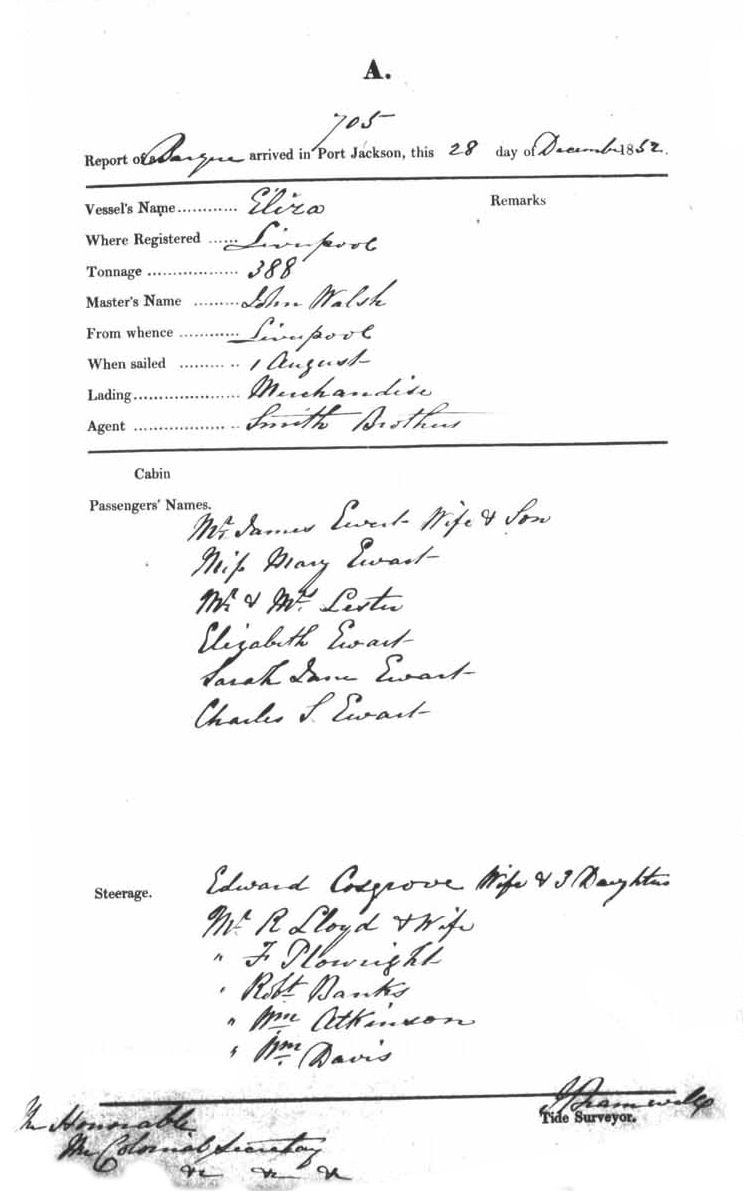 A.
705
Report of a Barque arrived in Port Jackson, this 28 day of December 1852.
Remarks
Vessel's Name............ Eliza
Where Registered ...... Liverpool
Tonnage .................. 388
Master's Name ......... John Walsh
From whence ............ Liverpool
When sailed ......... .. 1 August
Lading.................... Merchandise
Agent .................. .. Smith Brothers
Cabin
Passengers' Names.
Mr. James Ewart Wife & Son
Miss Mary Ewart
Mr. & Mrs. Lester
Elizabeth Ewart
Sarah Jane Ewart
Charles S. Ewart
Steerage. Edward Cosgrove Wife & 3 Daughters
Mr R Lloyd & Wife
" F Plowright
" Robt. Banks
" Wm. Atkinson
" Wm. Davis
Tide Surveyor.
The Honourable
The Colonial Secretary
&c &c &c